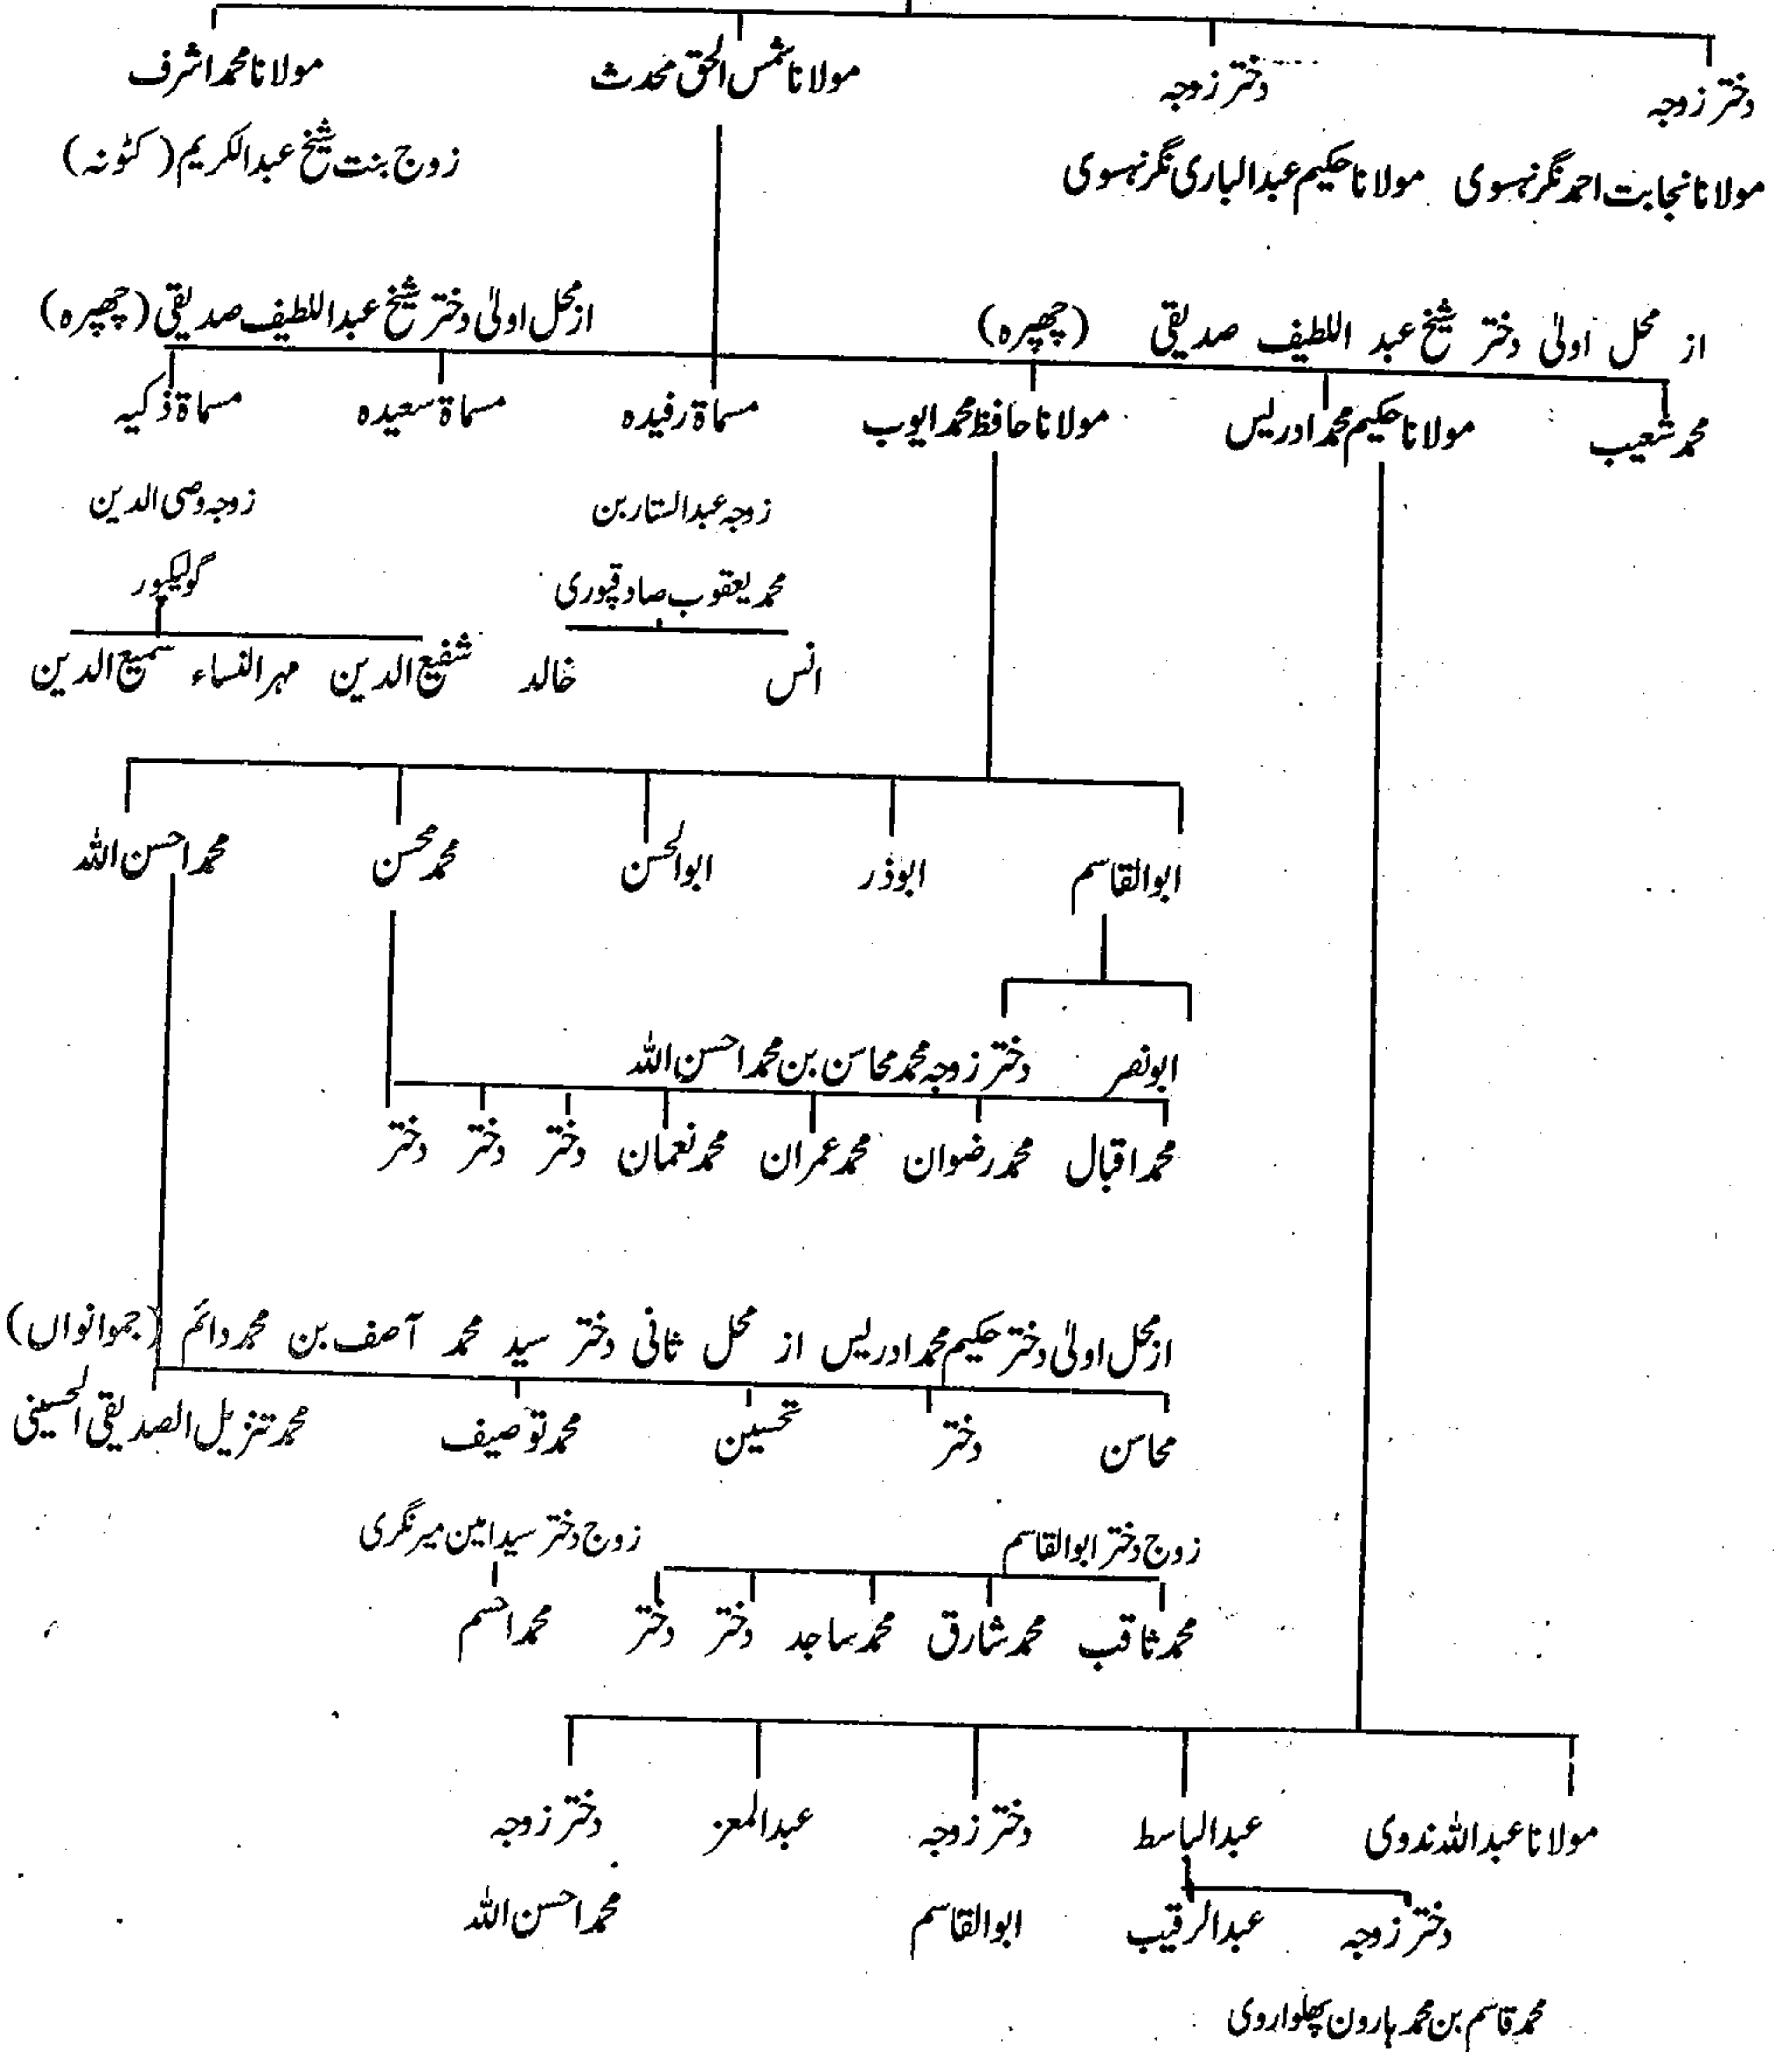 دختر زوجہ دختر زوجہ مولانا شمس الحق محدث مولانا محمد اشرف
مولانا نجابت احمد نگرنہسوی مولانا حکیم عبدالباری نگرنہسوی زوج بنت شیخ عبدالکریم (کٹونہ)
از محل اولیٰ دختر شیخ عبد اللطیف صدیقی (چھپرہ) از محل اولیٰ دختر شیخ عبداللطیف صدیقی (چھپرہ)
محمد شعیب مولانا حکیم محمد ادریس مولانا حافظ محمد ایوب مسماۃ رفیدہ مسماۃ سعیدہ مسماۃ ذکیہ
زوجہ عبدالستار بن زوجہ وصی الدین
محمد یعقوب صادقپوری گولیکپور
انس خالد شفیع الدین مہر النساء سمیع الدین
ابوالقاسم ابوذر ابوالحسن محمد محسن محمد احسن اللہ
ابونصر دختر زوجہ محمد محاسن بن محمد احسن اللہ
محمد اقبال محمد رضوان محمد عمران محمد نعمان دختر دختر دختر
از محل اولیٰ دختر حکیم محمد ادریس از محل ثانی دختر سید محمد آصف بن محمد دائم (جموانواں)
محاسن دختر تحسین محمد توصیف محمد تنزیل الصدیقی الحسینی
زوج دختر ابوالقاسم زوج دختر سید امین میرنگری
محمد ثاقب محمد شارق محمد ساجد دختر دختر محمد احسم
مولانا عبداللہ ندوی عبدالباسط دختر زوجہ عبدالمعز دختر زوجہ
دختر زوجہ عبدالرقیب ابوالقاسم محمد احسن اللہ
محمد قاسم بن محمد ہارون پھلواروی